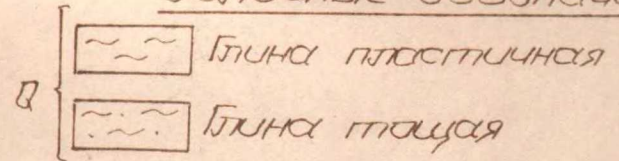 Глина пластичная
Q
Глина тощая